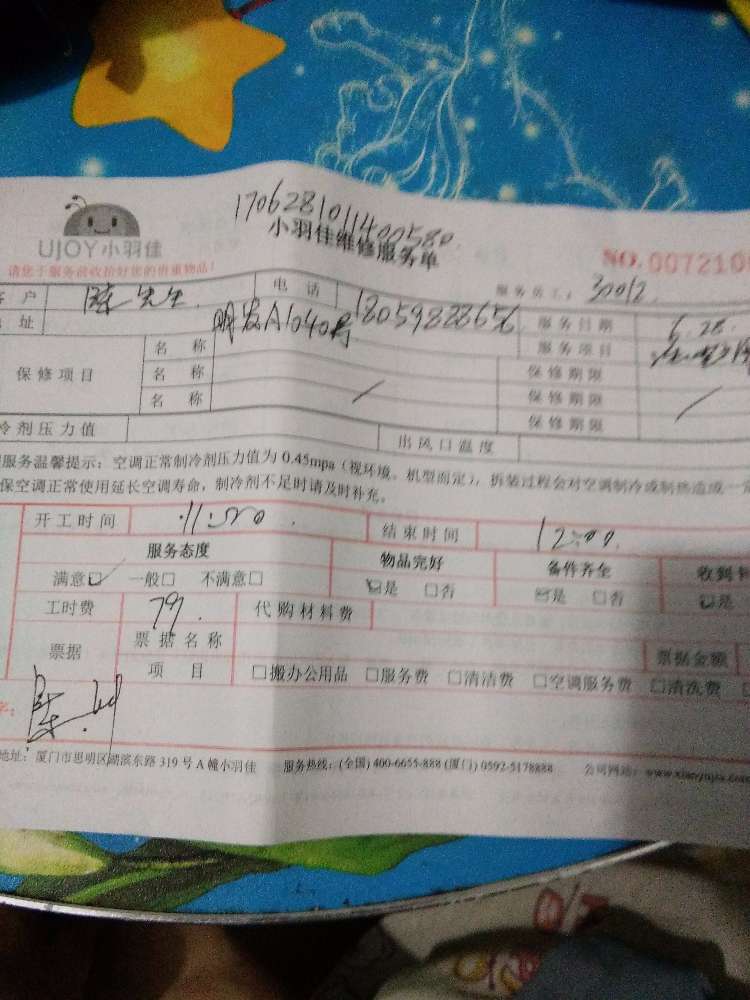 1706281011400580
UJOY小羽佳
小羽佳维修服务单
NO.007210
请您于服务前收拾好您的贵重物品!
服务员工: 30012
户 陈先生 电话 18059828656 服务日期 6.28.
址 明发A1040号 服务项目
保修项目 名称 保修期限
名称 保修期限
名称 / 保修期限 /
冷剂压力值 出风口温度
服务温馨提示:空调正常制冷剂压力值为 0.45mpa(视环境、机型而定),拆装过程会对空调制冷或制热造成一定
保空调正常使用延长空调寿命,制冷剂不足时请及时补充。
开工时间 11:50 结束时间 12:00
服务态度 物品完好 备件齐全 收到
满意☑ 一般□ 不满意□ ☑是 □否 ☑是 □否 ☑是
工时费 79. 代购材料费
票据 票据名称 票据金额
项目 □搬办公用品 □服务费 □清洁费 □空调服务费 □清洗费
字:
地址:厦门市思明区湖滨东路 319 号 A 幢小羽佳 服务热线:(全国) 400-6655-888 (厦门) 0592-5178888 公司网站:www.xiaoyujia.com